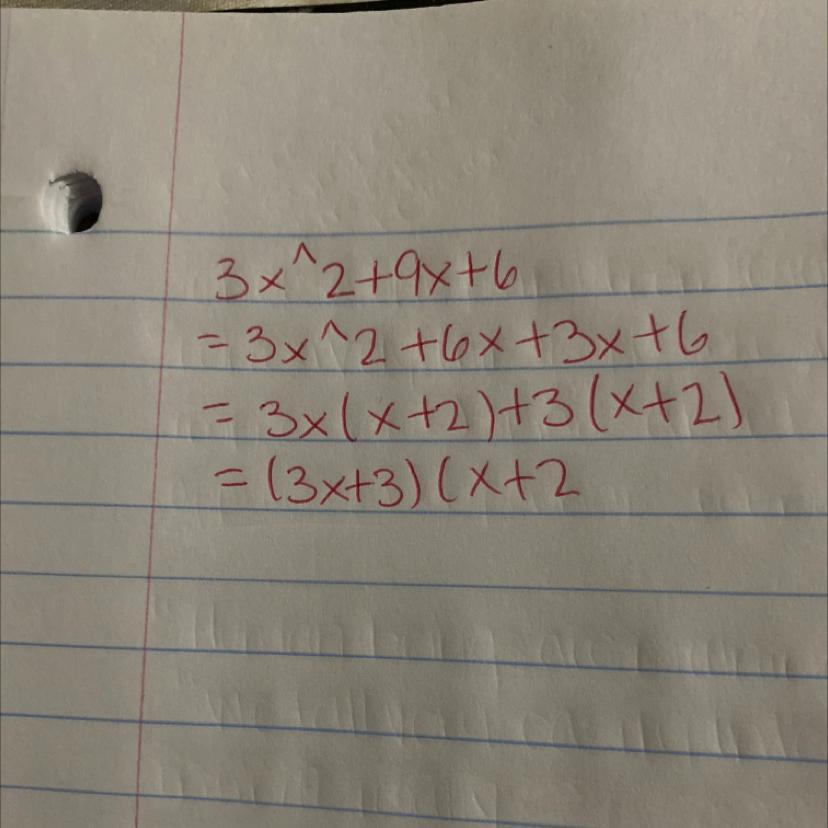 3x^2+9x+6
=3x^2+6x+3x+6
=3x(x+2)+3(x+2)
=(3x+3)(x+2